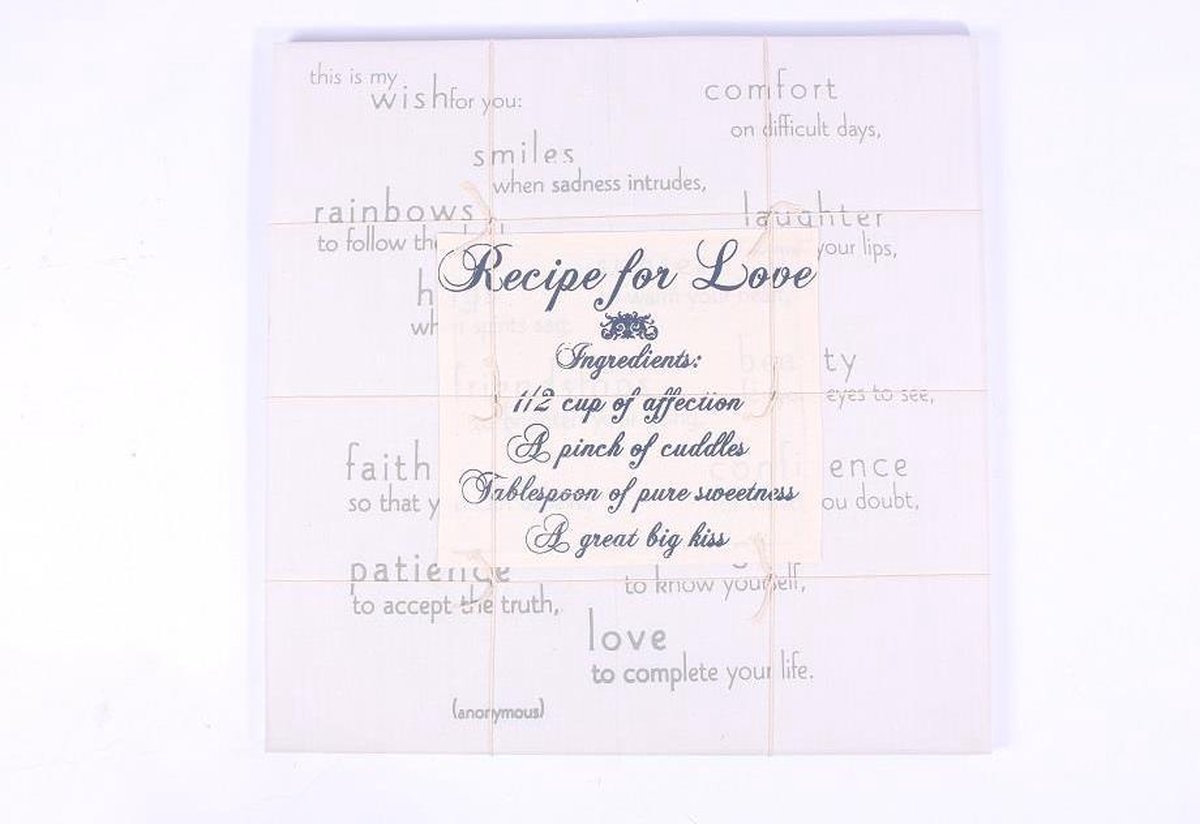 this is my
wish for you:
comfort
on difficult days,
smiles
when sadness intrudes,
rainbows
to follow the
laughter
your lips,
Recipe for Love
Ingredients:
1/2 cup of affection
A pinch of cuddles
Tablespoon of pure sweetness
A great big kiss
when spirits sag,
warm your
friendships
beauty
eyes to see,
faith
so that y
confidence
ou doubt,
patience
to accept the truth,
to know yourself,
love
to complete your life.
(anonymous)